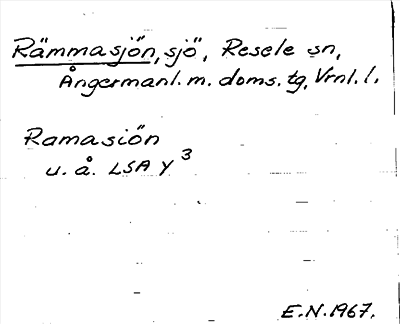 Rämmasjön, sjö, Resele sn,
Ångermanl. m. doms. tg, Vrnl. l.
Ramasiön
u. å. LSA Y 3
E.N. 1967.